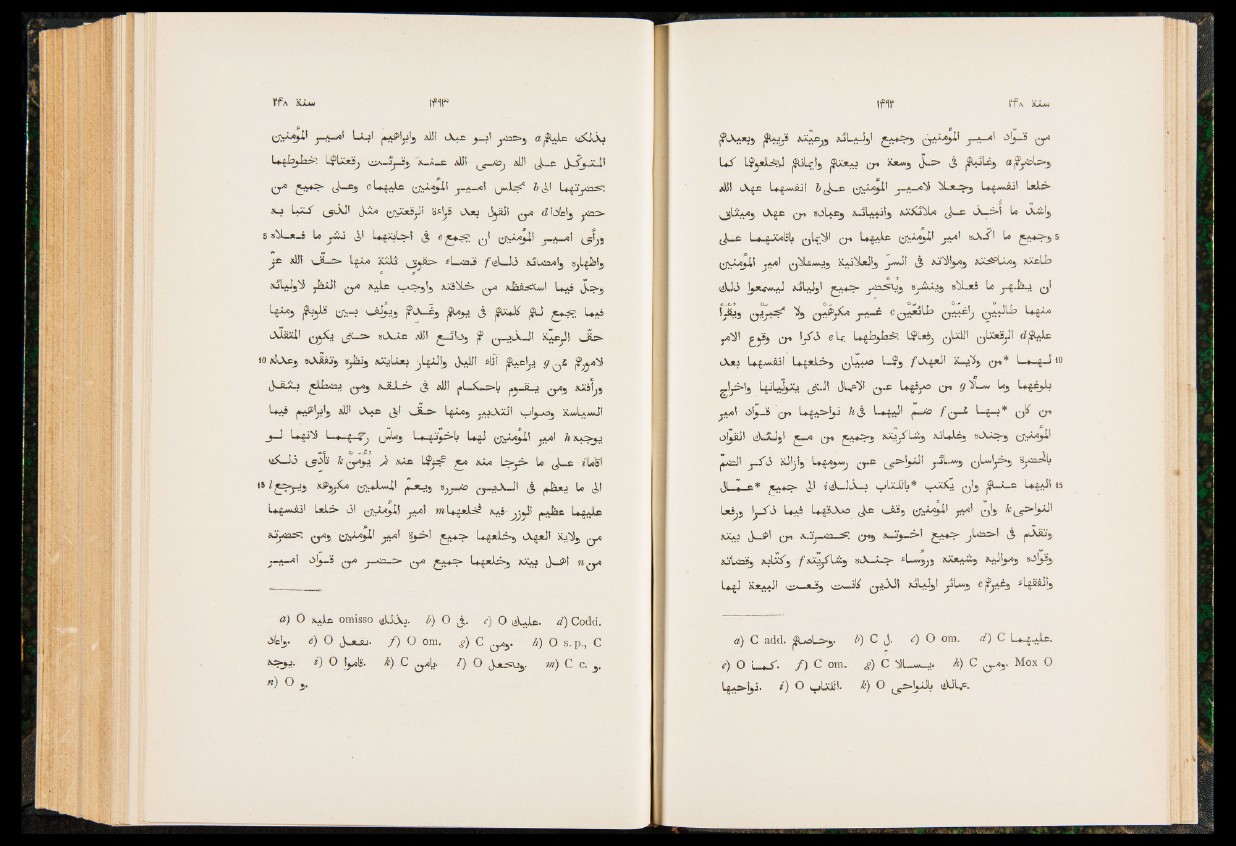 سنة ٢۴٨ ١۴٩٢
من قوّاد امير المؤمنين وجميع اوليائه ورعيّته قريبهم وبعيدهم
وحاضرهم a وغائبهم فى حلّ وسعة من بيعتهم وايمانهم ليخلعوها كما
خلعا انفسهما وجعلا لامير المؤمنين على b انفسهما عهد الله
واشدّ ما اخذ على ملائكته وانبيائه وعباده من عهد وميثاق
5 وجميع ما اكّده امير المؤمنين عليهما من الايمان باقامتهما على
طاعته ومناصحته وموالاته فى السرّ والعلانية ويسئلان امير المؤمنين
ان يظهر ما فعلاه وينشره ويُحْضِر جميع اوليائه ليسمعوا ذلك
منهما طالبَيْن راغبَيْن طائعَيْن c غير مكرهَيْن ولا مجبرَيْن ويُقْرأ
عليهم d الرقعتان اللتان رفعاها بخطوطهما بما e ذكرا من وقوع الامر
10 لهما *من ولاية العهد f وهما صبيّان وخلعهما انفسهما بعد
بلوغهما وما سألا g من صرفهما عن الاعمال التى يتولّيانها واخراج
من كان *بها ممّن f ضمّ اليهما فى h نواحيهما من قوّاد امير
المؤمنين وجنده وغلمانه وشاكريّته وجميع من مع اولئك القوّاد
بالحضرة وخراسان وسائر النواحى عن رسومهما وازالة ذكر الضمّ
15 اليهما عنهم وان يكتب *بالكتاب بذلك i الى جميع *عمّال
النواحى k وانّ امير المؤمنين وقف على صدقهما فيما ذكرا ورفعا
وتقدّم فى احضار جميع اخوته ومن بحضرته من اهل بيته
وقوّاده ومواليه وشيعته ورؤساء جنده وشاكريّته f وكتّابه وقضاته
والفقهاء وغيرهم e وسائر اوليائه الذين كانت وقعت البيعة لهما
a) C add. وخاصّهم. b) C ل. c) O om. d) C عليهما.
e) O كما. f) C om. g) C يسالا. h) C ومن. Mox O
نواحيها. i) O الكتاب. k) O عمالك بالنواحى.
سنة ٢۴٨ ١۴٩٣
بذلك عليهم a وحضر ابو عبد الله وابراهيم ابنا امير المؤمنين
المتوكّل على الله رضى الله عنه وقرئت رقعتاهما بخطوطهما
بحضرتهما الى b مجلس امير المؤمنين عليهما c وعلى جميع من
حضر واعادا d من القول بعد قراءة الرقعتين مثل الذى كتبا به
5 ورأى امير المؤمنين ان يجمع e فى اجابتهما الى نشر ما فعلاه
واظهاره وامضائه ذلك f قضاء حقوق ثلثة منها حقّ الله عزّ
وجلّ فيما استحفظه من خلافته واوجب عليه من النظر لاوليائه
فيما يجمع لهم كلمتهم فى يومهم وغدهم ويؤلّف بين قلوبهم ومنها
حقّ الرعيّة الذين هم ودائع الله عنده حتى يكون المتقلّد
10 لامورهم ممّن g يراعيهم آناء الليل والنهار بعنايته ونظره وتفقّده وعدله
ورأفته ومن يقوم باحكام الله فى خلقه ومن يضطلع بثقل
السياسة وصواب التدبير ومنها حقّ ابى عبد الله وابراهيم فيما
يوجبه h امير المؤمنين لهما باخوّتهما وماسّ رحمهما لانهما لو
اقاما i على ما خرجا منه مع عجزهما عنه لم يُؤْمَن k تأدّى ذلك
15 الى ما يعظم فى الدين ضرره ويعمّ المسلمين مكروهه ويرجع l
عليهما عظيم الوزر فيه فخلعهما m امير المؤمنين اذ خلعا انفسهما
من ولاية العهد وخلعهما جميع اخوة امير المؤمنين ومن بحضرته
n من اهل بيته وخلعهما جميع من حضر من قوّاد امير
a) O عليه omisso بذلك. b) O فى. c) O عليك. d) Codd.
واعاد. e) O يفعل. f) O om. g) C ومن. h) O s. p., C
يوجه. i) O قاموا. k) C يامن. l) O ويجعل. m) C c. و.
n) O و.